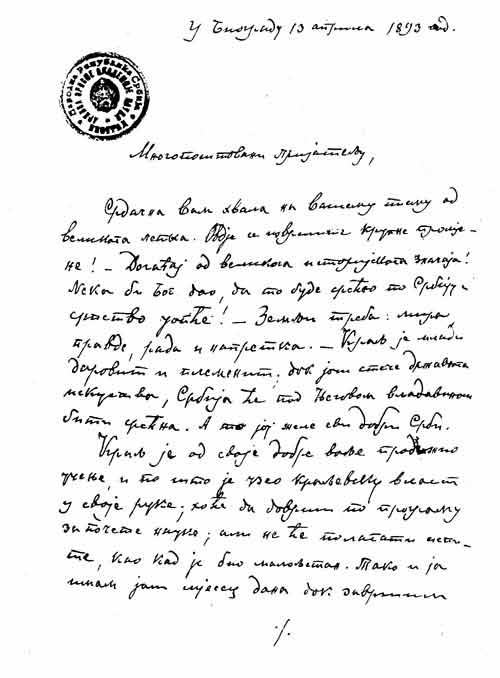 У Биограду 13 априла 1893 год.
Народна Република Србија
Многопоштовани пријатељу,
Срдачна Вам хвала на Вашему писму од
великога петка. Овдје се извршише крупне промје-
не! – Догађај од великога историјскога значаја!
Нека би Бог дао, да то буде срећно по Србију и
српство уопће! – Земљи треба: мира,
правде, рада и напретка. – Краљ је млади
даровит и племенит; док још стече државнога
искуства, Србија ће под Његовом владавином
бити срећна. А то јој желе сви добри Срби.
Краљ је од своје добре воље продужио
учење, и по што је узео краљевску власт
у своје руке; хоће да доврши по програму
започете науке; али не ће полагати испи-
те, као кад је био малољетан. Тако и ја
имам још мјесец дана док завршим
./.